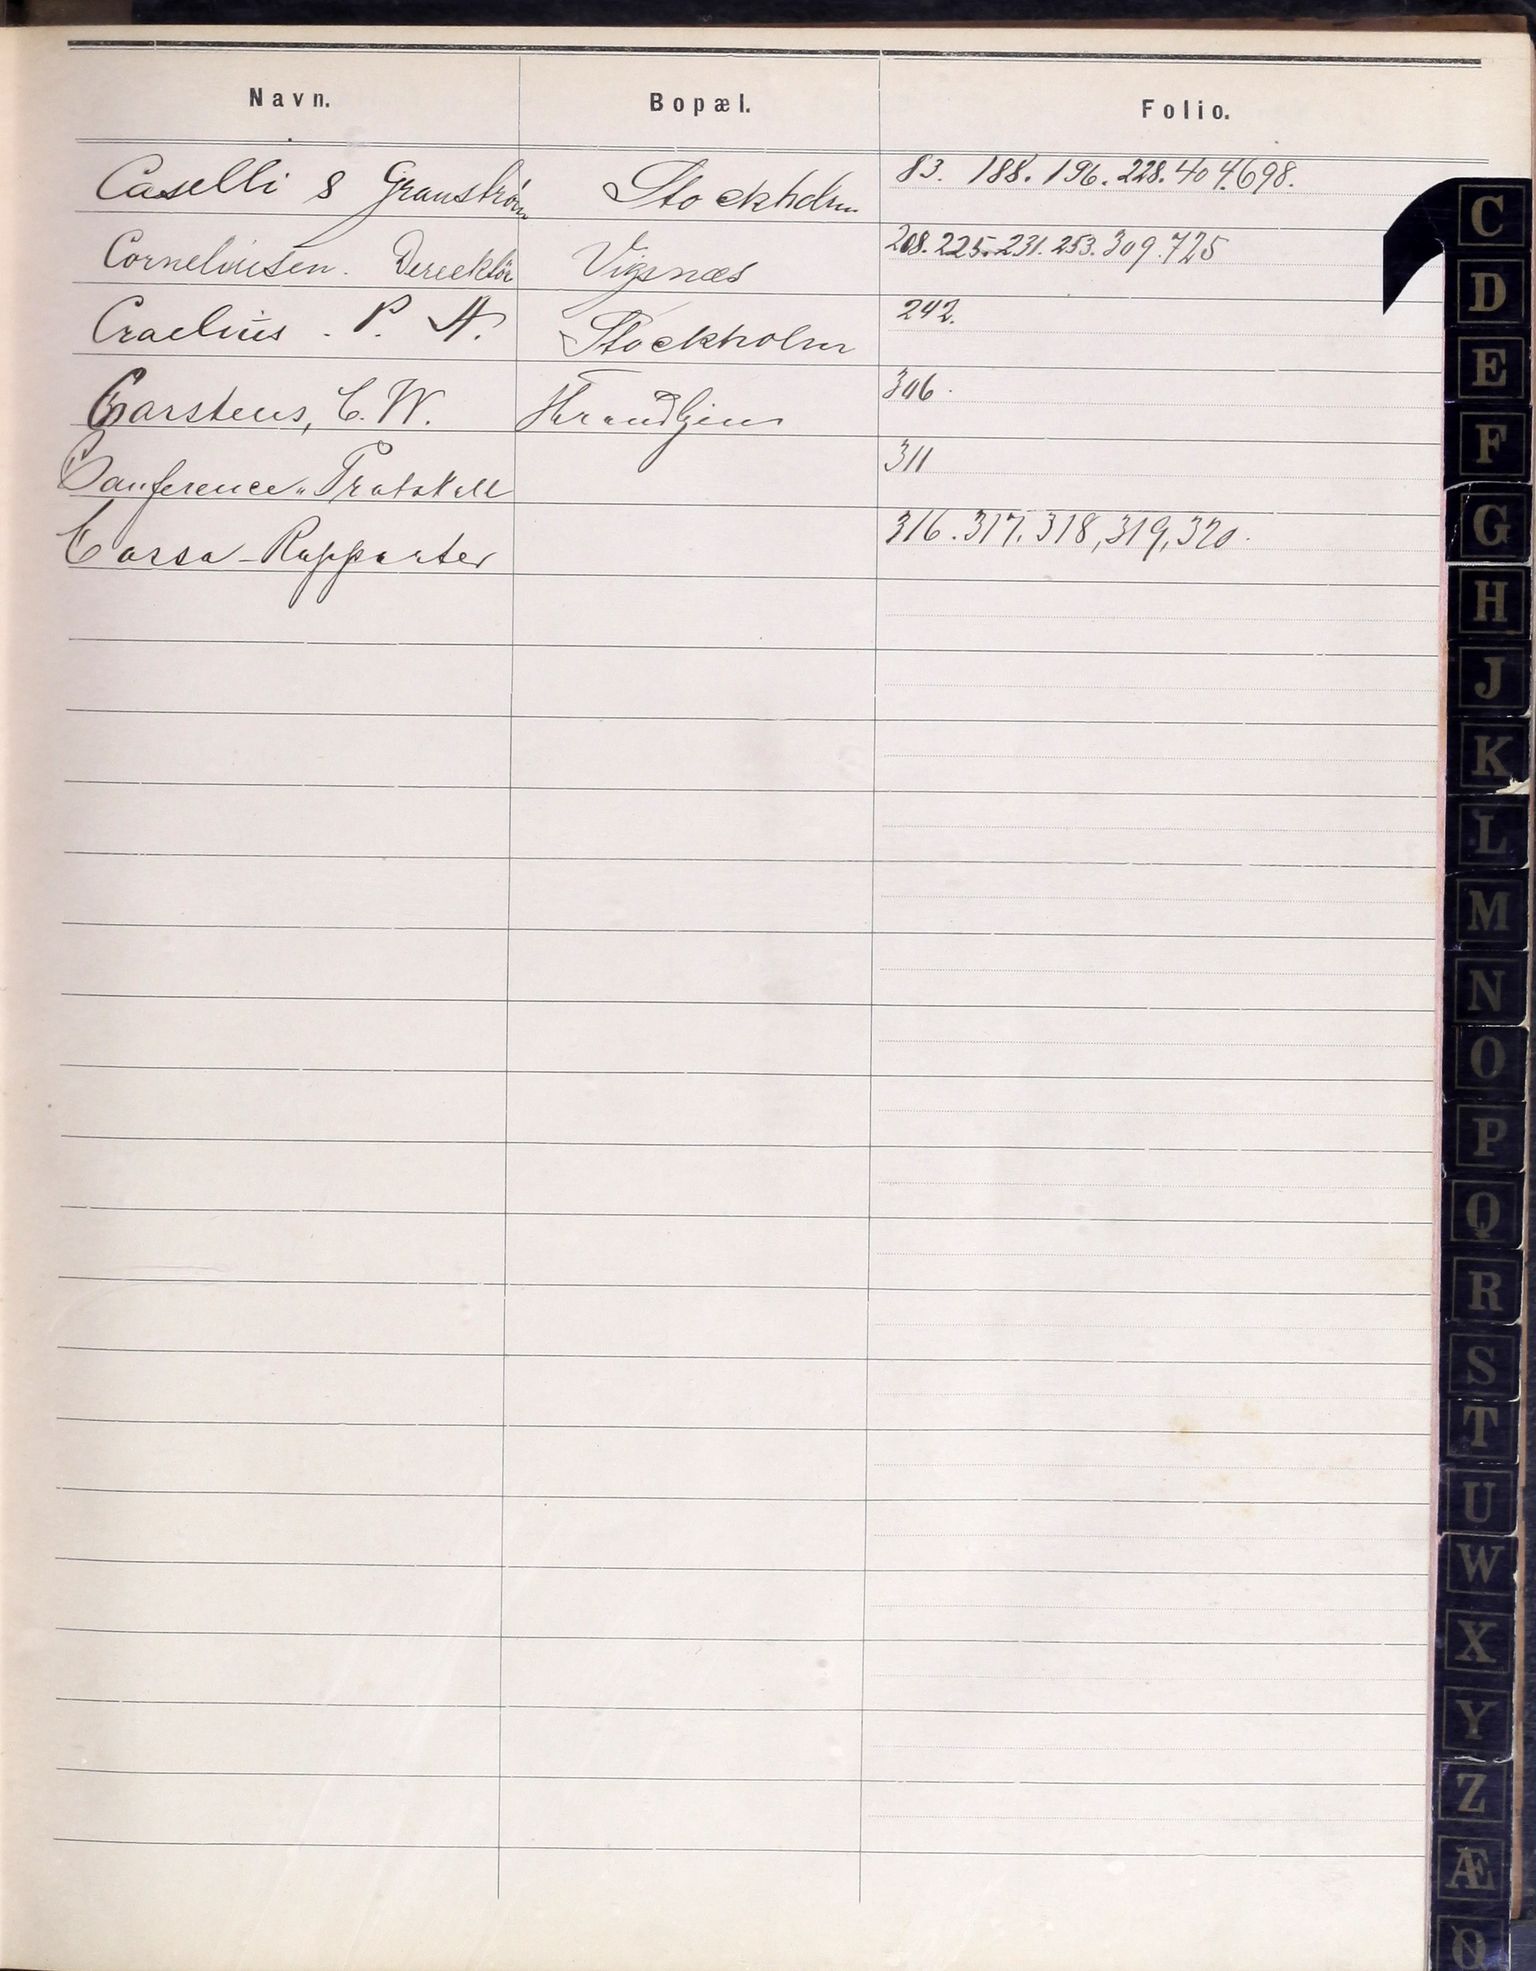 Navn. Bopæl. Folio.
Caselli & Granström Stockholm 83. 188. 196. 228. 404. 698.
Corneliusen. Dereektör Vigsnæs 208. 225. 231. 253. 309. 725
Craelius. P. A. Stockholm 242.
Carstens, C. W. Trondhjem 306.
Conference-Protokoll 311
Cassa-Rapporter 316. 317. 318, 319, 320.
C
D
E
F
G
H
J
K
L
M
N
O
P
Q
R
S
T
U
W
X
Y
Z
Æ
Ø